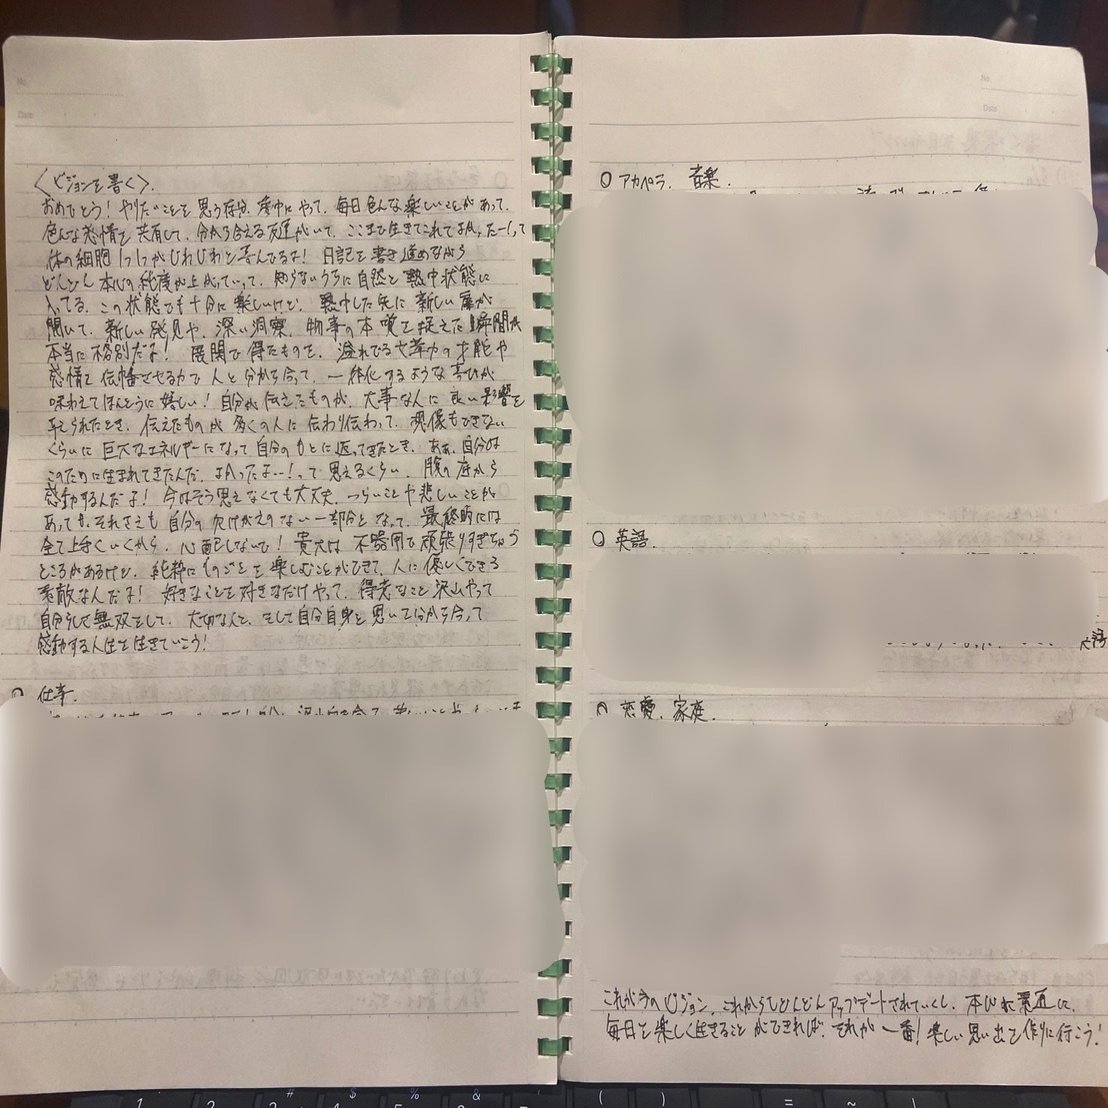 No.
Date
〈ビジョンを書く〉.
おめでとう! やりたいことを思う存分、夢中にやって、毎日色んな楽しいことがあって、
色んな感情を共有して、分かり合える友達がいて、ここまで生きてこれてよかったーって
体の細胞1つ1つがじわじわと喜んでるよ! 日記を書き進めながら
どんどん本心の純度が上がっていって、知らないうちに自然と熱中状態に
入ってる。この状態でも十分に楽しいけど、熱中した先に新しい扉が
開いて、新しい発見や、深い洞察、物事の本質を捉えた瞬間が
本当に格別だよ! 展開で得たものを、溢れでる文章力の才能や
感情を伝播させる力で人と分かち合って、一体化するような喜びが
味わえてほんとうに嬉しい! 自分が伝えたものが、大事な人に良い影響を
与えられたとき、伝えたものが多くの人に伝わり伝わって、想像もできない
くらいに巨大なエネルギーになって自分のもとに返ってきたとき、あぁ、自分は
このために生まれてきたんだ、よかったよー!って思えるくらい、腹の底から
感動するんだよ! 今はそう思えなくても大丈夫、つらいことや悲しいことが
あっても、それさえも自分の欠けがえのない一部分となって、最終的には
全て上手くいくから、心配しないで! 貴方は不器用で頑張りすぎちゃう
ところがあるけど、純粋にものごとを楽しむことができて、人に優しくできる
素敵なんだよ! 好きなことを好きなだけやって、得意なこと沢山やって
自分らしく無双をして、大切な人と、そして自分自身と思いを分かち合って
感動する人生を生きていこう!
○ 仕事.
No.
Date
○ アカペラ、音楽.
○ 英語.
○ 恋愛、家庭.
これが今のビジョン、これからもどんどんアップデートされていくし、本心に素直に、
毎日を楽しく生きることができれば、それが一番! 楽しい思い出を作りに行こう!